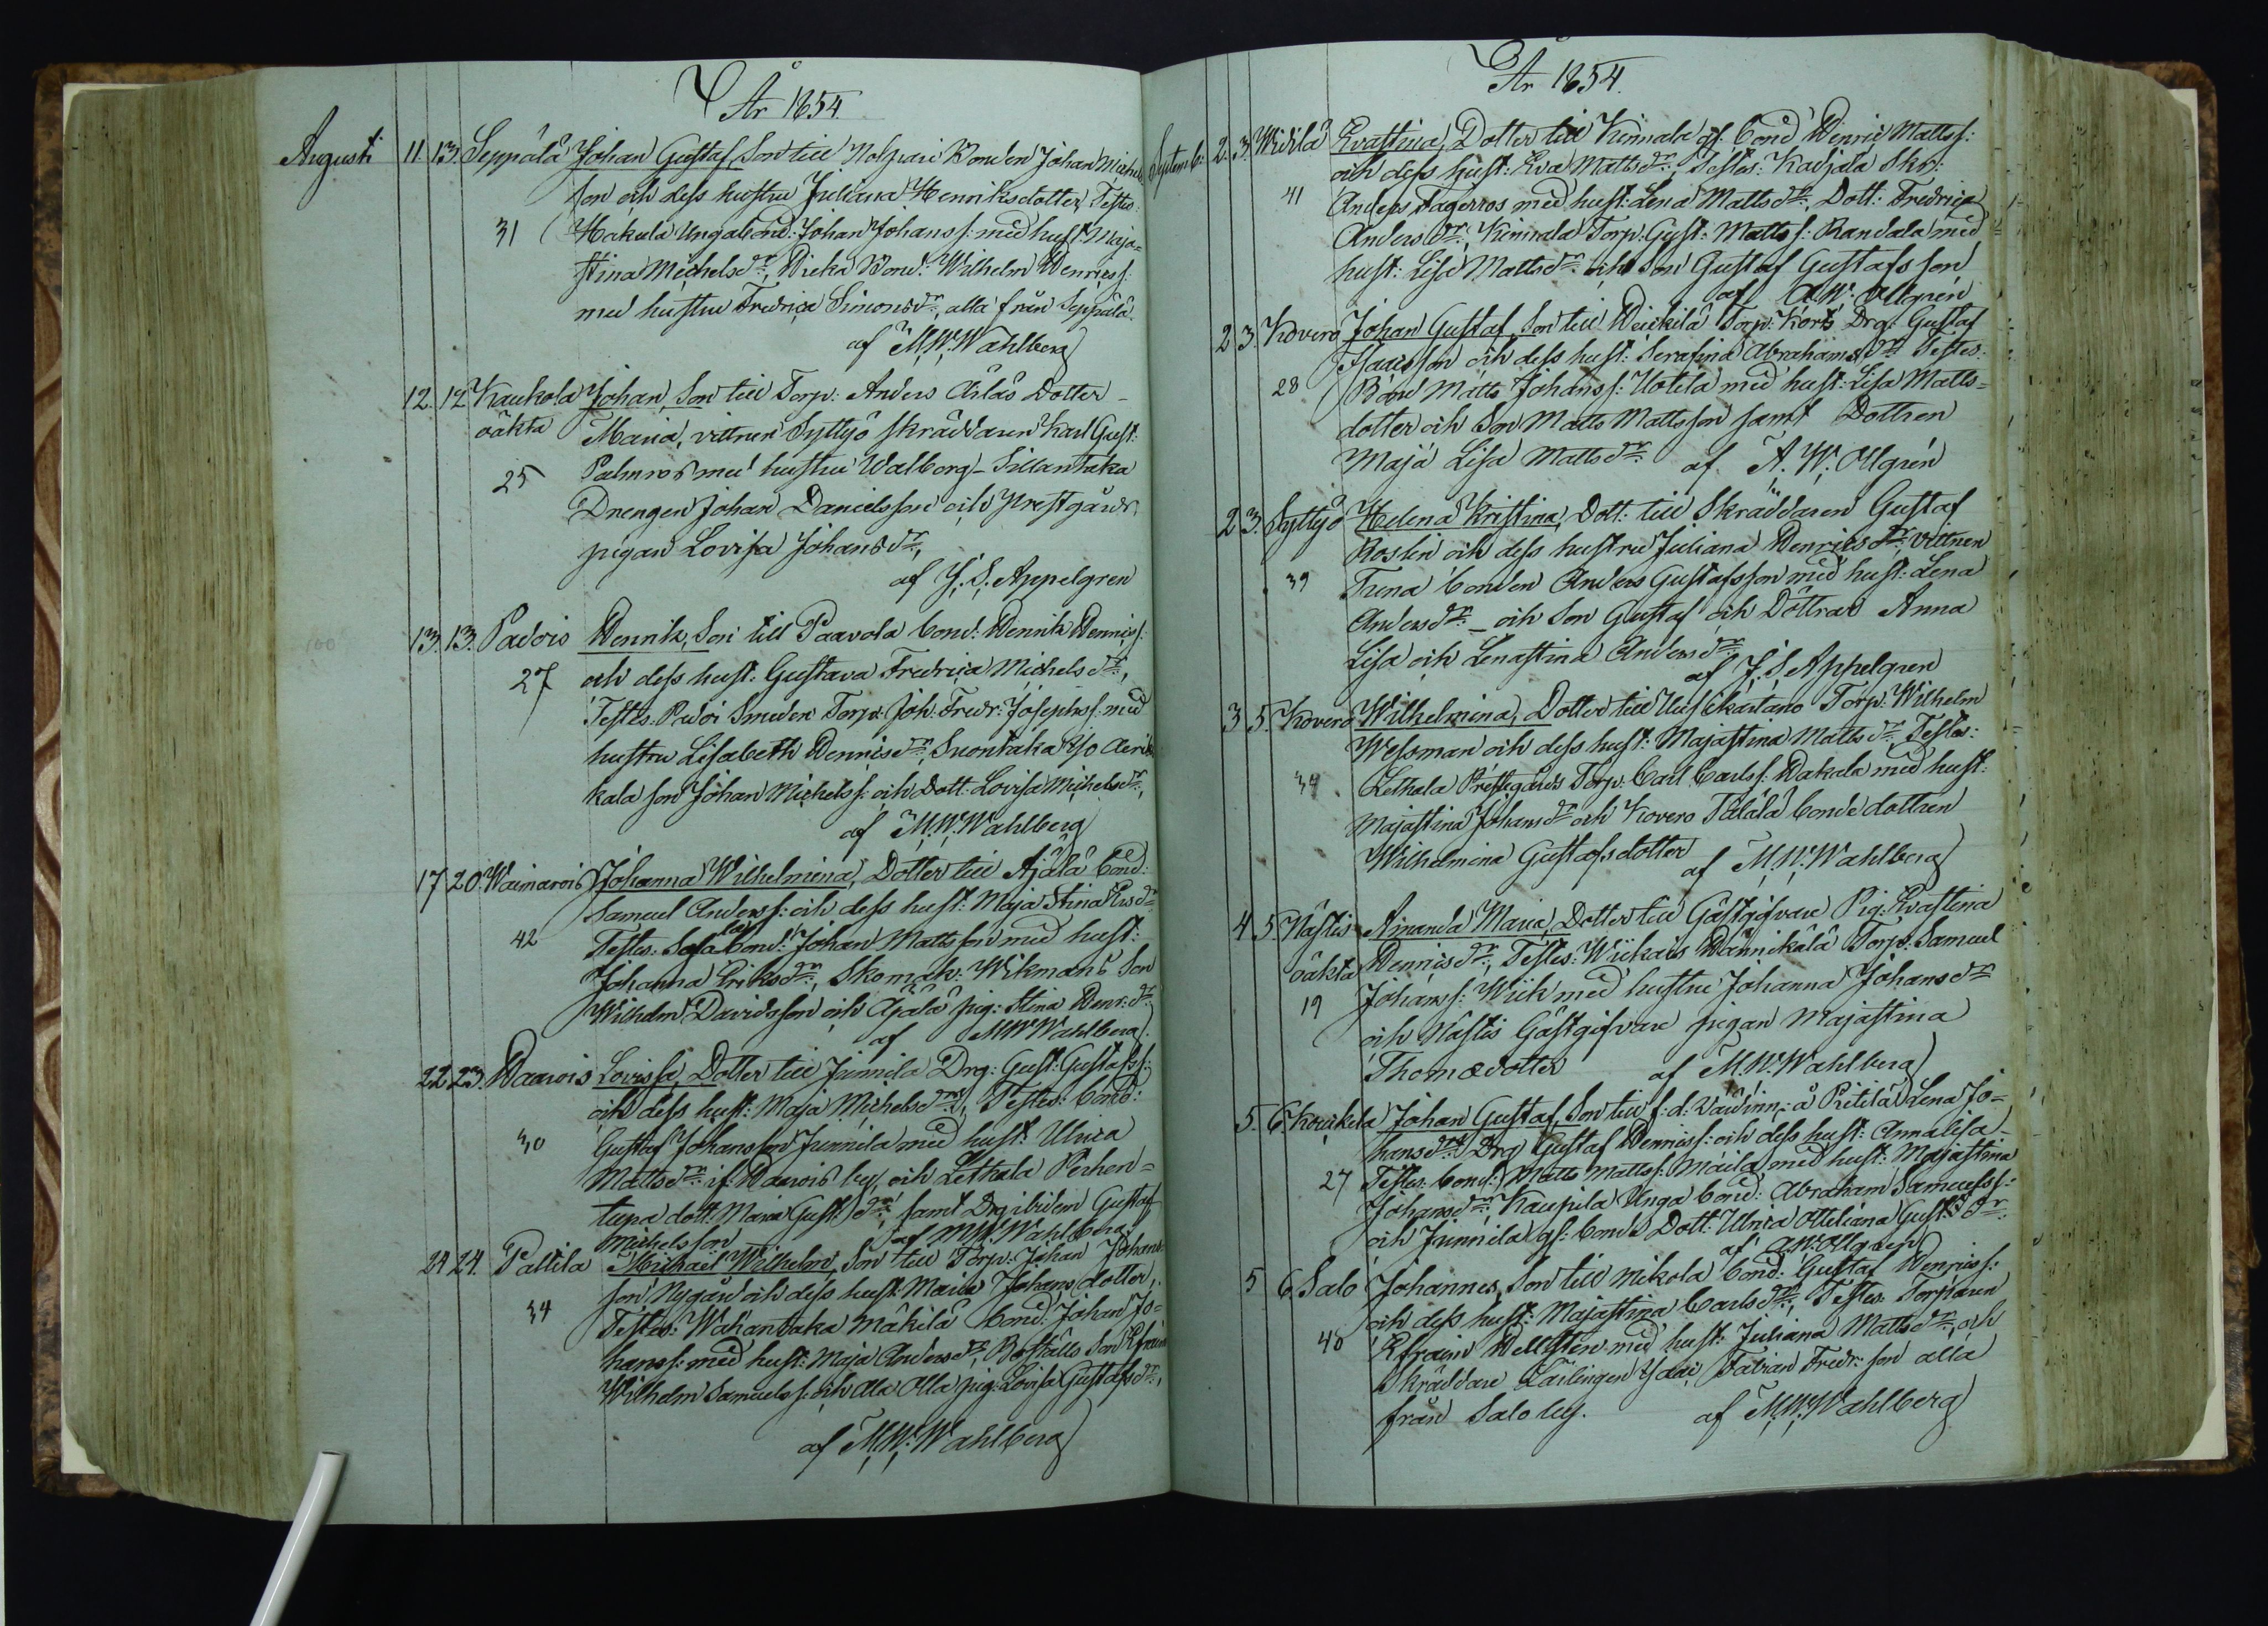 År 1854
Augusti 11. 13. Seppälä Johan Gustaf, Son till Nolpari Bonden Johan Michels
son och dess hustru Juliana Henriksdotter, Testes:
31 Hakula Unga bond: Johan Johans s: med hust: Maja=
stina Michelsdr:, Wieka Bond: Wilhelm Henrics s:
med hustru Fredrica Simonsdr:, alla från Seppälä.
af M.W. Wahlberg
12. 12 Kaukola Johan, Son till Torp: Anders Ailas Dotter
oäkta Maria, vittnen Syttyö skräddaren Karl Gust:
25 Palmros med hustru Walborg – Sillantaka
Drengen Johan Danielsson och Prestgårds
pigan Lovisa Johansdr:,
af J. S. Appelgren
13. 13. Padois Henrik, Son till Paavola bond: Henrik Henrics s:
27 och dess hust. Gustava Fredrica Michelsdr:,
Testes. Padoi Smeden Torp: Joh: Fredr: Josephs s: med
hustru Lisabeth Henricsdr:, Suontaka Yso
kala son Johan Michels s: och Dott: Lovisa Michelsdr:,
af M.W. Wahlberg
17 20. Wainarois Johanna Wilhelmina, Dotter till Ajälä bond:
Samuel Anders s: och dess hust: Maja Stina
42 Testes: bond: Johan Mattsson med hust:
Johanna Eriksdr:, Skomak: Wikmans Son
Wilhelm Davidsson och Ajälä pig: Stina Henr: dr:
af M.W. Wahlberg
22 23. Haarois Lovissa, Dotter till Junnila Drg: Gust: Gustafs s:
och dess hust: Maja Michelsdr:, Testes: bond:
30 Gustaf Johansson Junnila med hust: Ulrica
Mattsdr: if: Haarois by, och Lethala Perhen=
tupa dott: Maria Gust: dr:, samt Drg ibidem Gustaf
Michelsson af M.W. Wahlberg
24 24. Pattila Michael Wilhelm, Son till Torp: Johan Johans
son Nygård och dess hust: Maria Johansdotter,
34 Testes: Wahantaka Mäkilä bond: Johan Jo=
hans s: med hust: Maja Andersdr:, Boställs Son Efraim
Wilhelm Samuels s: och Ala Olla pig: Lovisa Gustafsdr:,
af M.W. Wahlberg
År 1854.
Septemb: 2. 3. Widilä Evastina, Dotter till Kinnala gf: bond Henric Matts s:
och dess hust: Eva Mattsdr:, Testes: Kadjala Skr:
41 Anders Fagerros med hust: Lena Mattsdr:, Dott: Fredrica
Andersdr:, Kinnala Torp: Gust: Matts s: Randala med
hust: Lisa Mattsdr: och Son Gustaf Gustafsson
af A.W. Allgrén
2 3. Kovero Johan Gustaf, Son till Heikkilä Torp: Korts Drg: Gustaf
Isacsson och dess hust: Serafina Abrahamsdr: Testes:
28 Bond Matts Johans s: Uotila med hust: Lisa Matts=
dotter och Son Matts Mattsson samt Dottren
Maja Lisa Mattsdr: af A. W. Allgrén
2 3. Syttyö Helena Kristina, Dott: till Skräddaren Gustaf
Roslin och dess hustru Juliana Henricsdr: vittnen
39 Tuna bonden Anders Gustafsson med hust: Lena
Andersdr: – och Son Gustaf och Döttrar Anna
Lisa och Lenastina Andersdr:
af J. S. Appelgren
3 5. Kovero Wilhelmina, Dotter till Uusikartano Torp: Wilhelm
Wessman och dess hust: Majastina Mattsdr: Testes:
34 Lethala Prestegårds Torp: Carl Carls s: Hakala med hust:
Majastina Johansdr: och Kovero Tälälä bonde dottren
Wilhelmina Gustafsdotter af M.W. Wahlberg
4 5. Nästis Amanda Maria, Dotter till Gästgifvare Pig: Evastina
oäkta Henricsdr:, Testes: Wiekais Hännikälä Torp: Samuel
19 Johans s: Wiik med hustru Johanna Johansdr:
och Nästis Gästgifvare pigan Majastina
Thomædotter af M.W. Wahlberg
5. 6. Kouikela Johan Gustaf, Son till f: d: å Pietilä Lena Jo=
hansdr: Drg Gustaf Henrics s: och dess hust: Annalisa
27 Testes: bond: Matts Matts s: Maila med hust: Majastina
Johansdr: Kaupila Unga bond: Abraham Samuels s:
och Junnila gf: bonds Dott: Ulrica Ottiliana Gust: dr:
af A.W. Allgren
5 6. Salo Johannes, Son till Mikola bond: Gustaf Henrics s:
och dess hust: Majastina Carlsdr:, Testes: Torparen
40 Efraim Hellsten med hust: Juliana Mattsdr:, och
Skräddare Lärlingen Isac Fabian Fredr: son alla
från Salo by. af M.W. Wahlberg